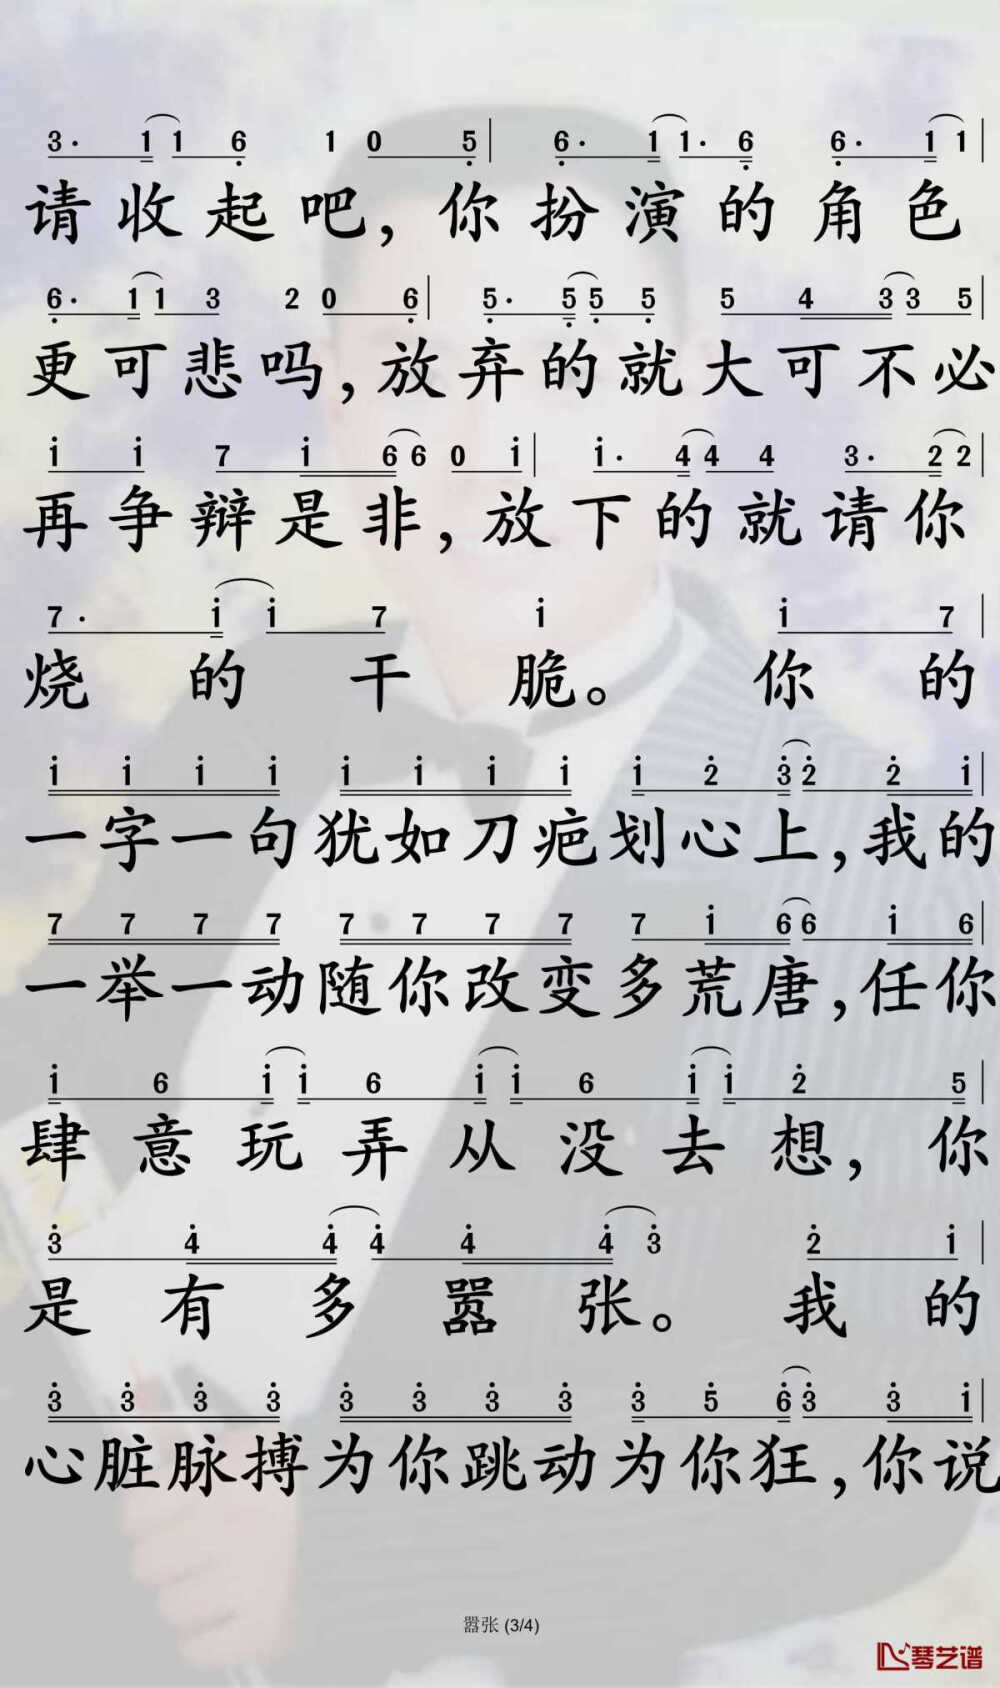 3· 1 1 6 1 0 5 | 6· 1 1· 6 6· 1 1 |
请收起吧，你扮演的角色
6· 1 1 3 2 0 6 | 5· 5 5 5 5 4 3 3 5
更可悲吗，放弃的就大可不必
i i 7 i 6 6 0 i | i· 4 4 4 3· 2 2
再争辩是非，放下的就请你
7· i i 7 i i 7 |
烧的干脆。你的
i i i i i i i i i 2 3 2 2 i |
一字一句犹如刀疤划心上，我的
7 7 7 7 7 7 7 7 7 i 6 6 i 6 |
一举一动随你改变多荒唐，任你
i 6 i i 6 i i 6 i i 2 5 |
肆意玩弄从没去想，你
3 4 4 4 4 4 3 2 i |
是有多嚣张。我的
3 3 3 3 3 3 3 3 3 5 6 3 3 i |
心脏脉搏为你跳动为你狂，你说
嚣张 (3/4)
琴艺谱